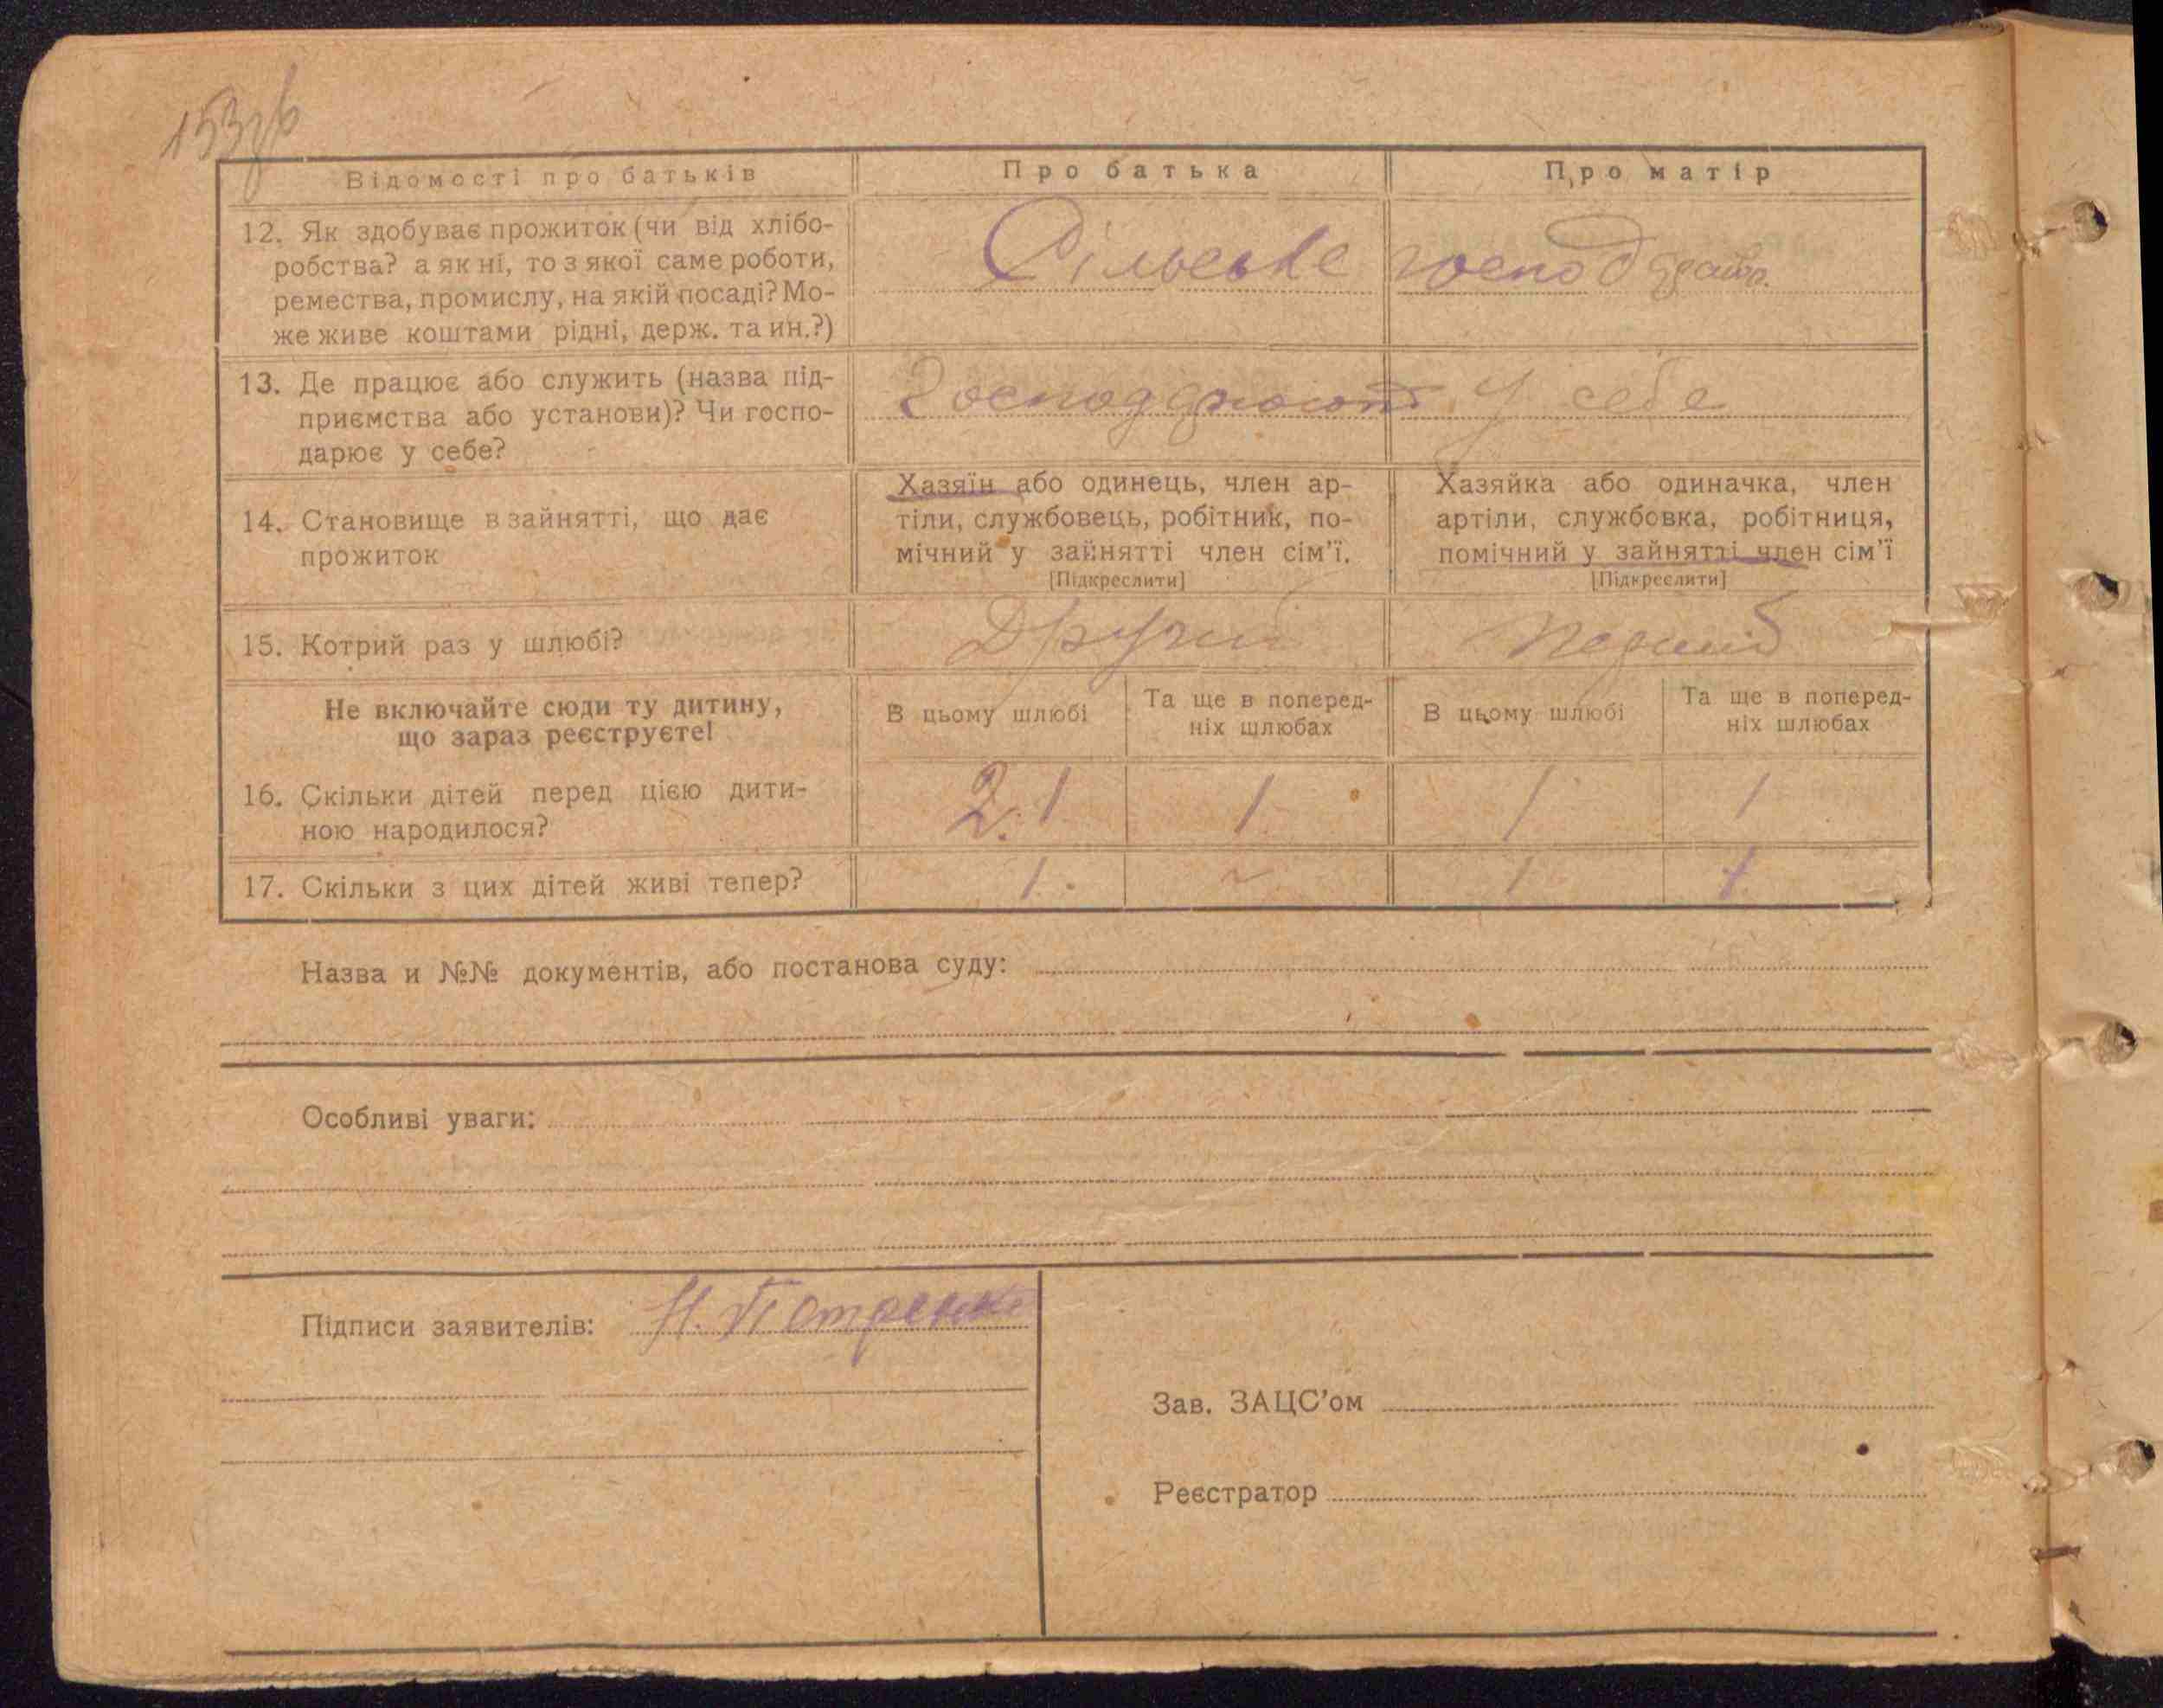 153зв
Відомості про батьків
Про батька
Про матір
12. Як здобуває прожиток (чи від хлібо-
робства? а як ні, то з якої саме роботи,
ремества, промислу, на якій посаді? Мо-
же живе коштами рідні, держ. та ин.?)
Сільське господарств.
13. Де працює або служить (назва під-
приємства або установи)? Чи госпо-
дарює у себе?
Господарюють У себе
14. Становище в зайнятті, що дає
прожиток
Хазяїн або одинець, член ар-
тіли, службовець, робітник, по-
мічний у зайнятті член сім'ї.
[Підкреслити]
Хазяйка або одиначка, член
артіли, службовка, робітниця,
помічний у зайнятті член сім'ї
[Підкреслити]
15. Котрий раз у шлюбі?
Другий
Перший
Не включайте сюди ту дитину,
що зараз реєструєте!
В цьому шлюбі
Та ще в поперед-
ніх шлюбах
В цьому шлюбі
Та ще в поперед-
ніх шлюбах
16. Скільки дітей перед цією дити-
ною народилося?
2. 1
1
1
1
17. Скільки з цих дітей живі тепер?
1.
~
1
1
Назва и №№ документів, або постанова суду:
Особливі уваги:
Підписи заявителів: Н. Петренко
Зав. ЗАЦС'ом
Реєстратор